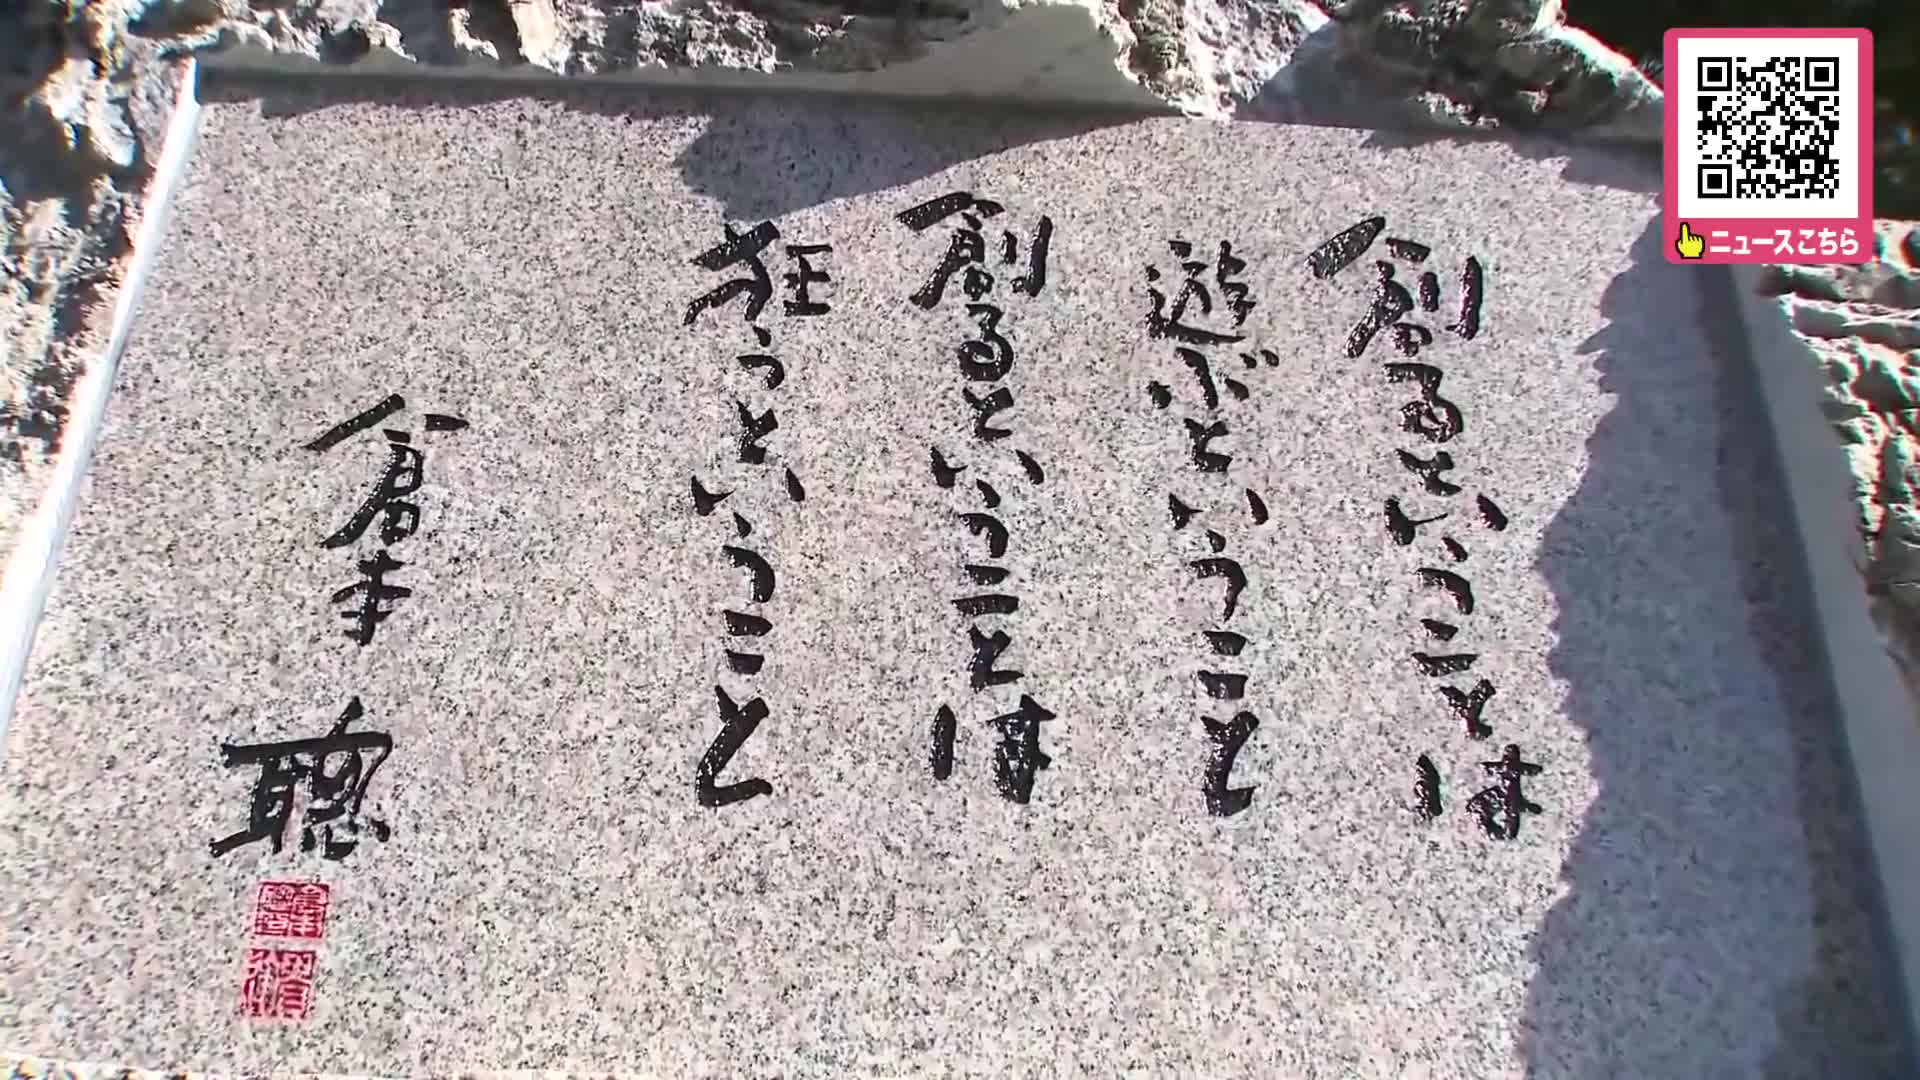 創るということは
遊ぶということ
創るということは
狂うということ
倉本 聰
ニュースこちら